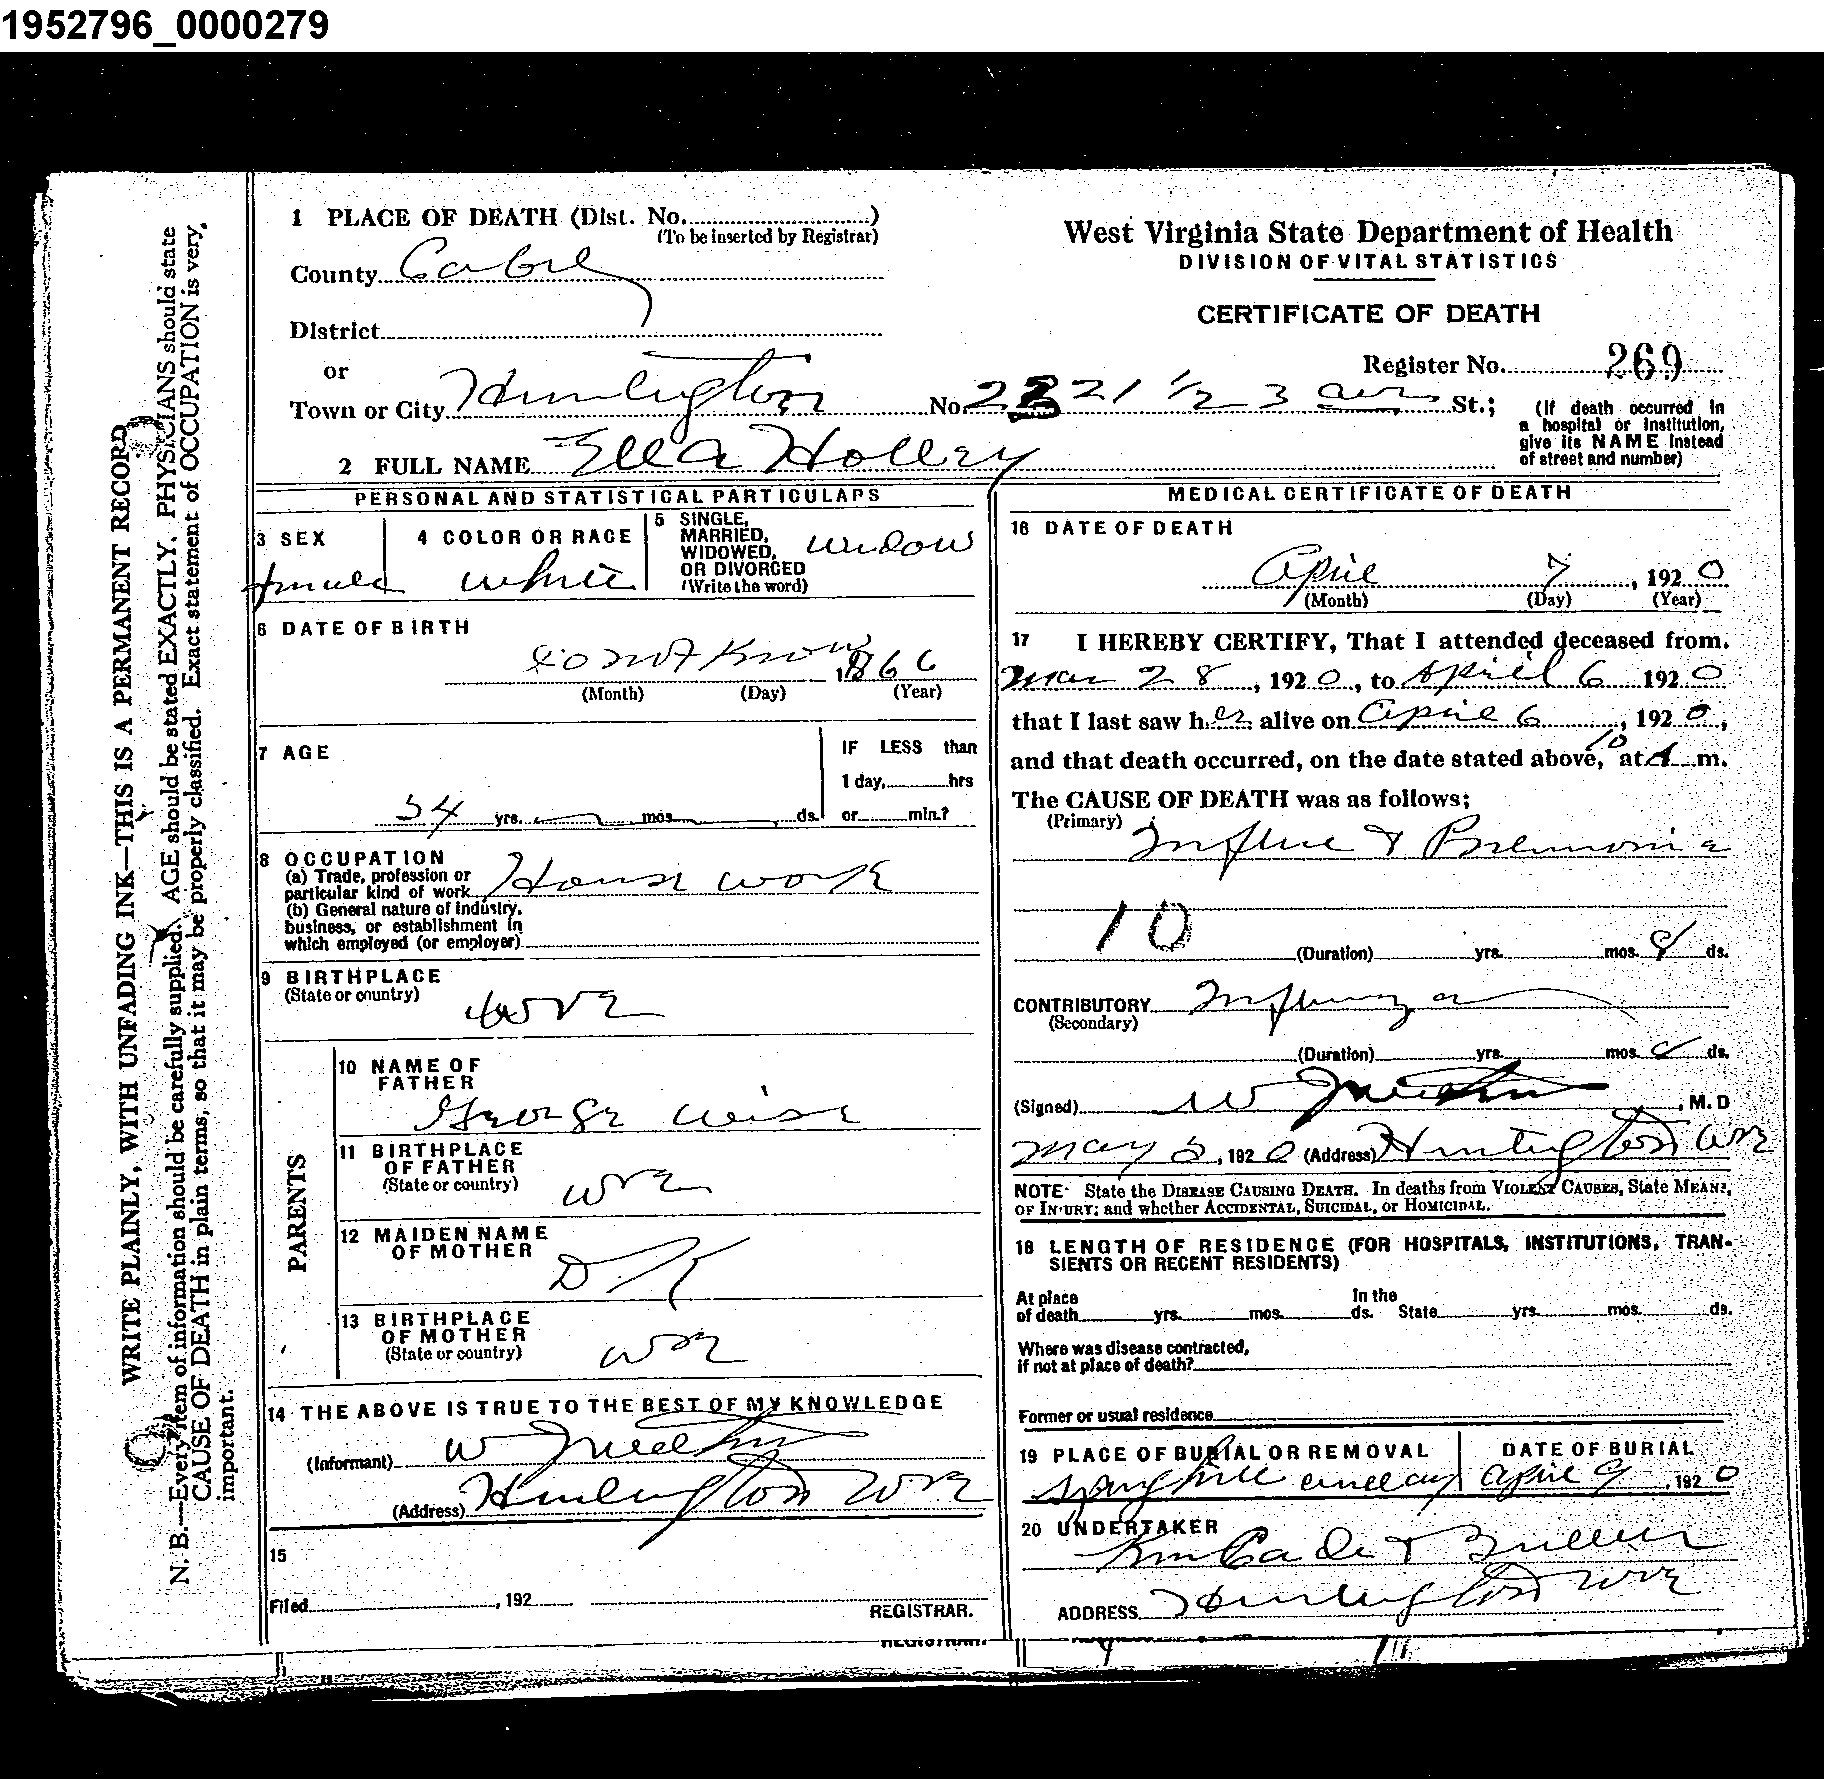 1952796_0000279
WRITE PLAINLY, WITH UNFADING INK—THIS IS A PERMANENT RECORD
N. B.—Every item of information should be carefully supplied. AGE should be stated EXACTLY. PHYSICIANS should state
CAUSE OF DEATH in plain terms, so that it may be properly classified. Exact statement of OCCUPATION is very
important.
1 PLACE OF DEATH (Dist. No.)
(To be inserted by Registrar)
County Cabell
District
or
Town or City Huntington No 2821 1/2 3 ave St.;
(If death occurred in
a hospital or institution,
give its NAME instead
of street and number)
2 FULL NAME Ella Holley
West Virginia State Department of Health
DIVISION OF VITAL STATISTICS
CERTIFICATE OF DEATH
Register No. 269
PERSONAL AND STATISTICAL PARTICULARS
3 SEX
female
4 COLOR OR RACE
white
5 SINGLE,
MARRIED,
WIDOWED,
OR DIVORCED
(Write the word)
widow
6 DATE OF BIRTH
dont Know, 1866
(Month) (Day) (Year)
7 AGE
54 yrs. mos. ds.
IF LESS than
1 day, hrs
or min.?
8 OCCUPATION
(a) Trade, profession or
particular kind of work House work
(b) General nature of industry,
business, or establishment in
which employed (or employer)
9 BIRTHPLACE
(State or country) W Va
PARENTS
10 NAME OF
FATHER
George Wise
11 BIRTHPLACE
OF FATHER
(State or country) W Va
12 MAIDEN NAME
OF MOTHER
D. K
13 BIRTHPLACE
OF MOTHER
(State or country) W Va
14 THE ABOVE IS TRUE TO THE BEST OF MY KNOWLEDGE
(Informant) W
(Address) Huntington W Va
15
Filed , 192
REGISTRAR.
MEDICAL CERTIFICATE OF DEATH
16 DATE OF DEATH
April 7, 1920
(Month) (Day) (Year)
17 I HEREBY CERTIFY, That I attended deceased from.
Mar 28, 1920, to April 6 1920
that I last saw her alive on April 6, 1920,
and that death occurred, on the date stated above, at 10 A m.
The CAUSE OF DEATH was as follows;
(Primary)
Influe & Pneumonia
10
(Duration) yrs. mos. 8 ds.
CONTRIBUTORY Influenza
(Secondary)
(Duration) yrs. mos. ds.
(Signed) W , M. D
May 5, 1920 (Address) Huntington W Va
NOTE· State the DISEASE CAUSING DEATH. In deaths from VIOLENT CAUSES, State MEANS,
OF INJURY; and whether ACCIDENTAL, SUICIDAL, or HOMICIDAL.
18 LENGTH OF RESIDENCE (FOR HOSPITALS, INSTITUTIONS, TRAN-
SIENTS OR RECENT RESIDENTS)
At place In the
of death yrs. mos. ds. State yrs. mos. ds.
Where was disease contracted,
if not at place of death?
Former or usual residence
19 PLACE OF BURIAL OR REMOVAL
Spring hill
DATE OF BURIAL
April 9, 1920
20 UNDERTAKER
ADDRESS Huntington W Va
REGISTRAR.